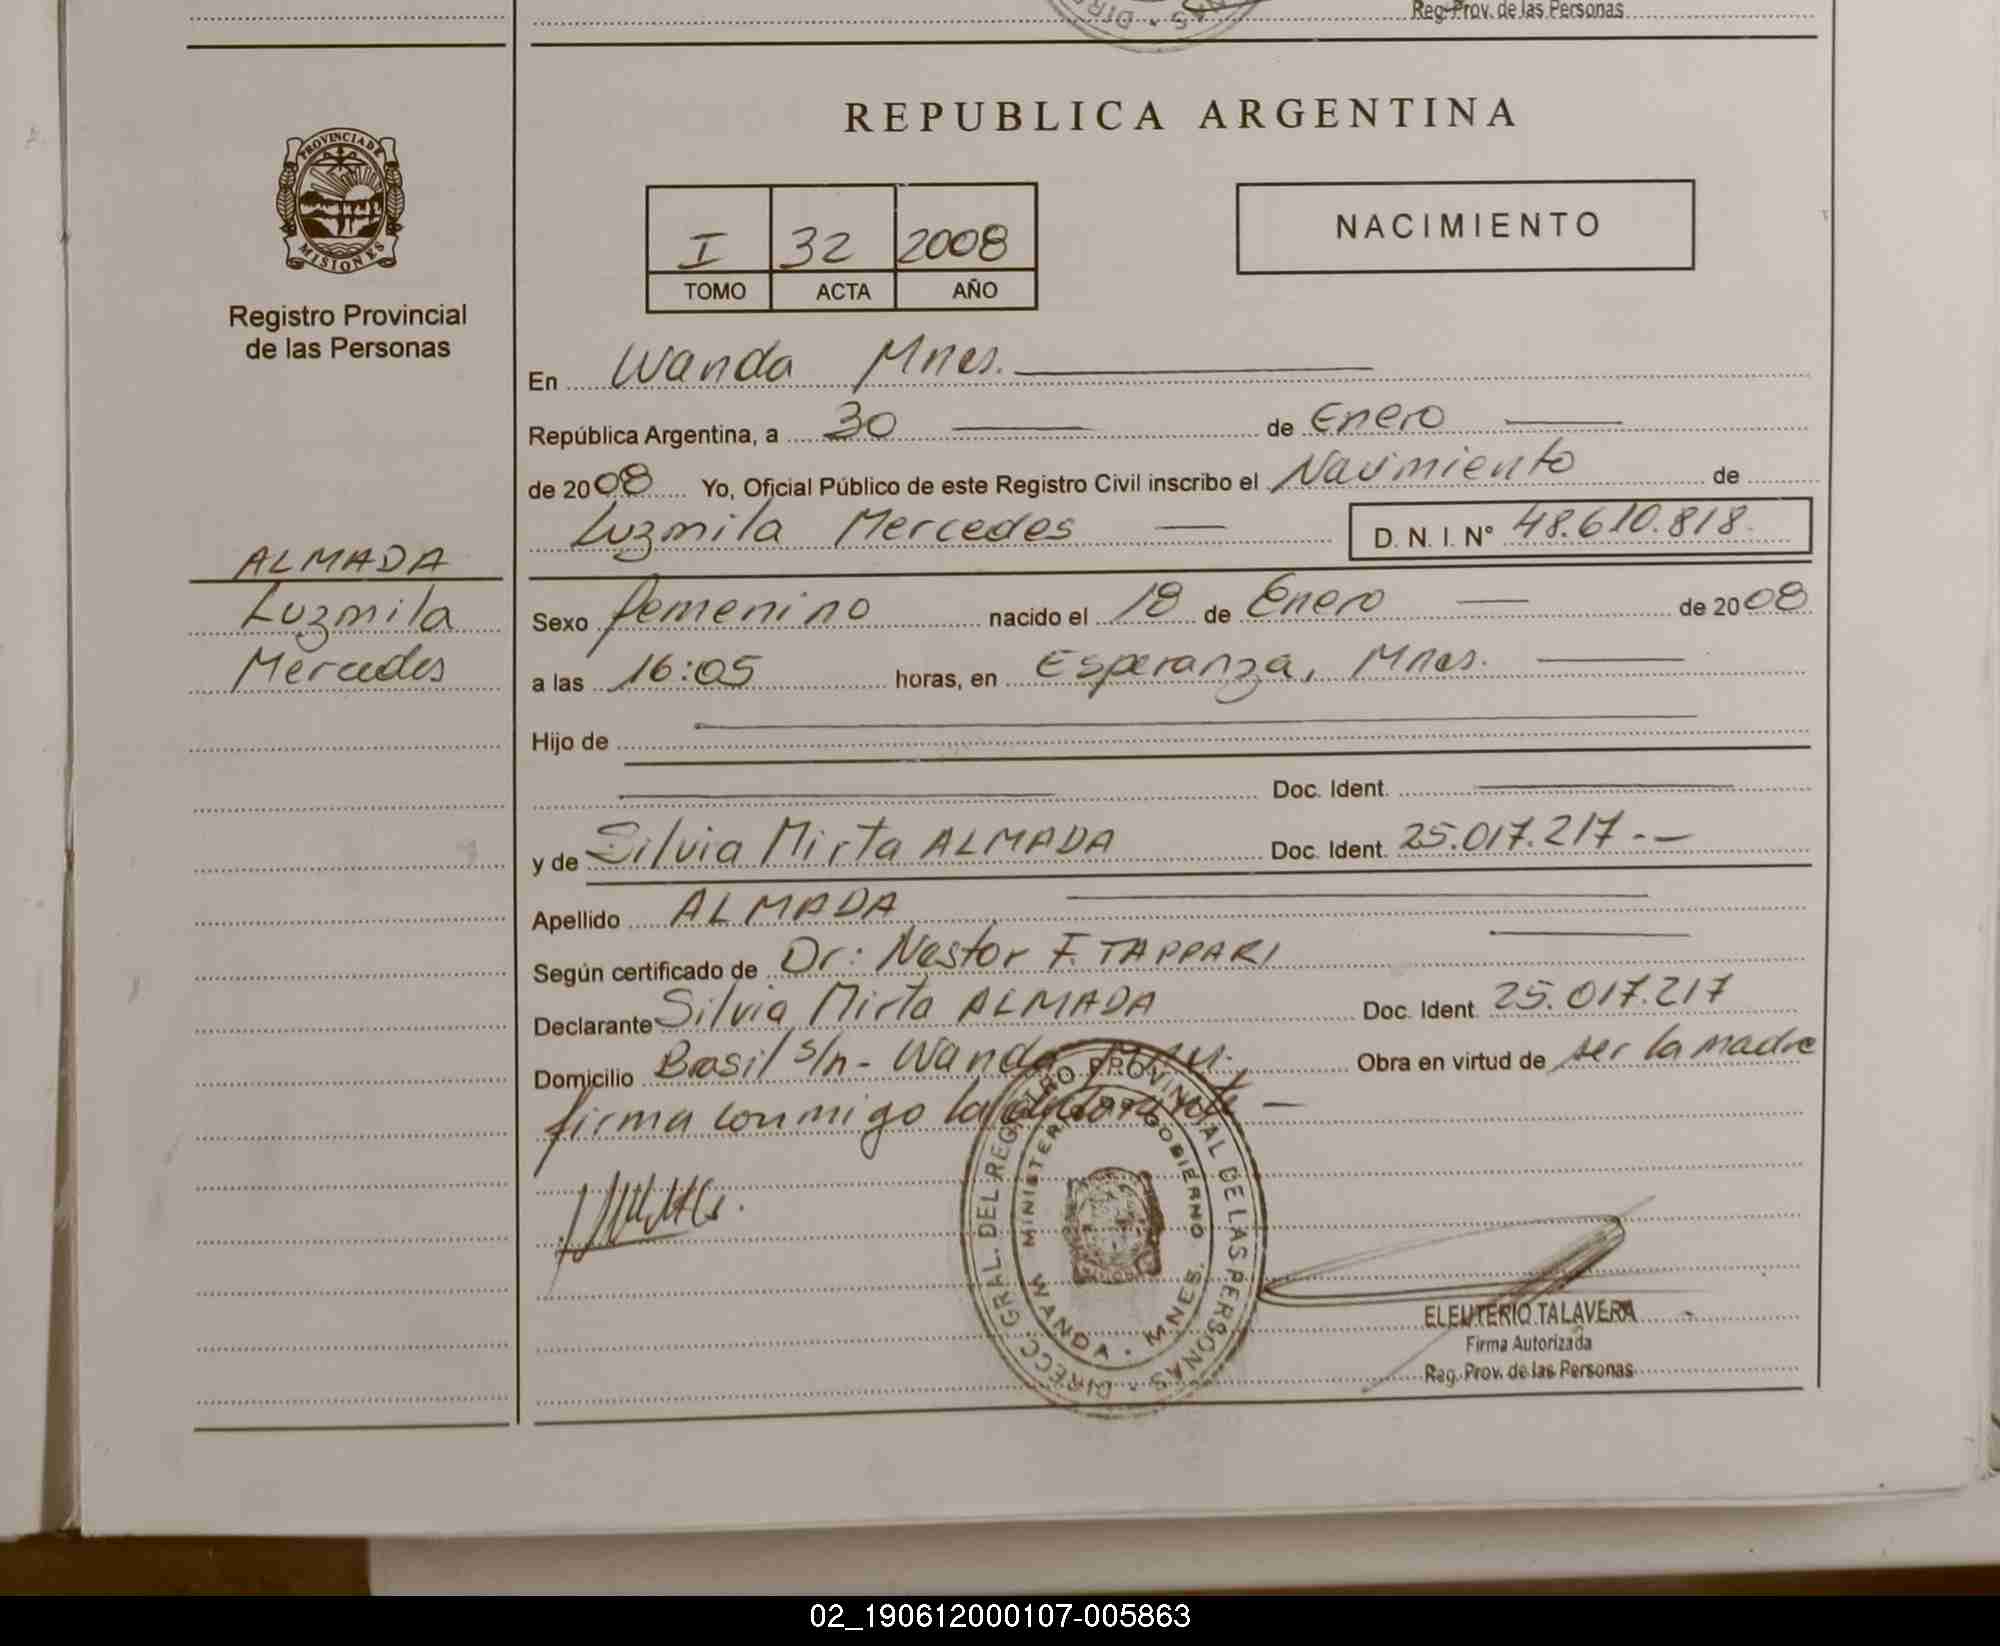 Reg. Prov. de las Personas
REPUBLICA ARGENTINA
PROVINCIA DE
MISIONES
Registro Provincial
de las Personas
I 32 2008
TOMO ACTA AÑO
NACIMIENTO
En Wanda Mnes.
República Argentina, a 30 de Enero
de 2008 Yo, Oficial Público de este Registro Civil inscribo el Nacimiento de
Luzmila Mercedes D. N. I. Nº 48.610.818.
ALMADA
Luzmila
Mercedes
Sexo femenino nacido el 18 de Enero de 2008
a las 16:05 horas, en Esperanza, Mnes.
Hijo de
Doc. Ident.
y de Silvia Mirta ALMADA Doc. Ident. 25.017.217.-
Apellido ALMADA
Según certificado de Dr: Nestor F. TAPPARI
Declarante Silvia Mirta ALMADA Doc. Ident. 25.017.217
Domicilio Brasil s/n - Wanda Mnes. Obra en virtud de ser la madre
firma conmigo la declarante
DIRECC. GRAL. DEL REGISTRO PROVINCIAL DE LAS PERSONAS
MINISTERIO DE GOBIERNO
WANDA - MNES.
ELEUTERIO TALAVERA
Firma Autorizada
Reg. Prov. de las Personas
02_190612000107-005863